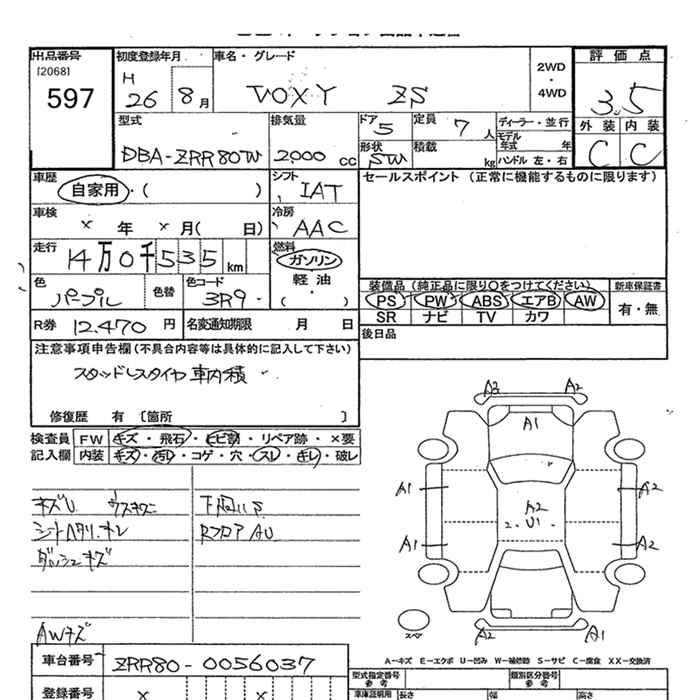 出品番号
[2068]
597
初度登録年月
H 26 8月
車名・グレード
VOXY ZS
2WD
・
4WD
評価点
3.5
外装 内装
C C
型式
DBA-ZRR80W
排気量
2000 cc
ドア 5
形状 SW
定員 7 人
積載 kg
ディーラー・並行
モデル年式 年
ハンドル 左・右
車歴
自家用・( )
シフト
IAT
セールスポイント (正常に機能するものに限ります)
車検
× 年 × 月( 日)
冷房
AAC
走行
14万0千535km
燃料
ガソリン
軽油
・( )
色
パープル
色替
色コード
3R9
装備品(純正品に限り○をつけてください)
PS PW ABS エアB AW
SR ナビ TV カワ
新車保証書
有・無
R券 12.470 円
名変通知期限 月 日
後日品
注意事項申告欄(不具合内容等は具体的に記入して下さい)
スタッドレスタイヤ車内積
修復歴 有 〔箇所 〕
検査員 FW キズ・飛石・ヒビ割・リペア跡・×要
記入欄 内装 キズ・汚レ・コゲ・穴・スレ・キレ・破レ
キズU
シートヘタリ・キレ
ダッシュキズ
AWキズ
RフロアAU
A2 A2
A1
A1 A2 A2
U1
A1 A2
スペア
A2 A1
A—キズ E—エクボ U—凹み W—補修跡 S—サビ C—腐食 XX—交換済
車台番号 ZRR80-0056037
登録番号 × ×
型式指定番号
参考
類別区分番号
参考
車庫証明用 長さ 幅 高さ